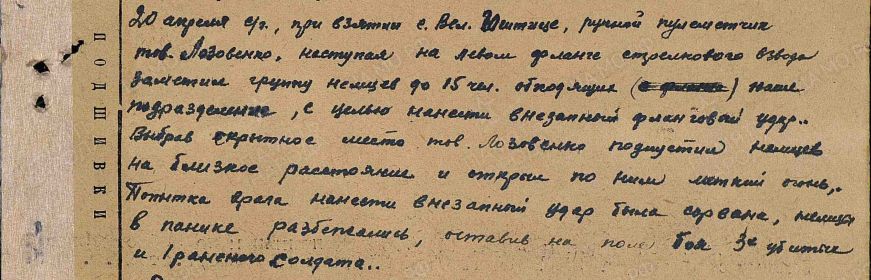 20 апреля с/г., при взятии с. Вел. ручной пулеметчик
тов. Лозовенко, наступая на левом фланге стрелкового взвода
заметил группу немцев до 15 чел. обходящих (с фланга) наше
подразделение, с целью нанести внезапный фланговый удар..
Выбрав скрытное место тов. Лозовенко подпустил немцев
на близкое расстояние и открыл по ним меткий огонь,.
Попытка врага нанести внезапный удар была сорвана, немцы
в панике разбежались, оставив на поле боя 3х убитых
и 1 раненого солдата..
ПОДШИВКИ